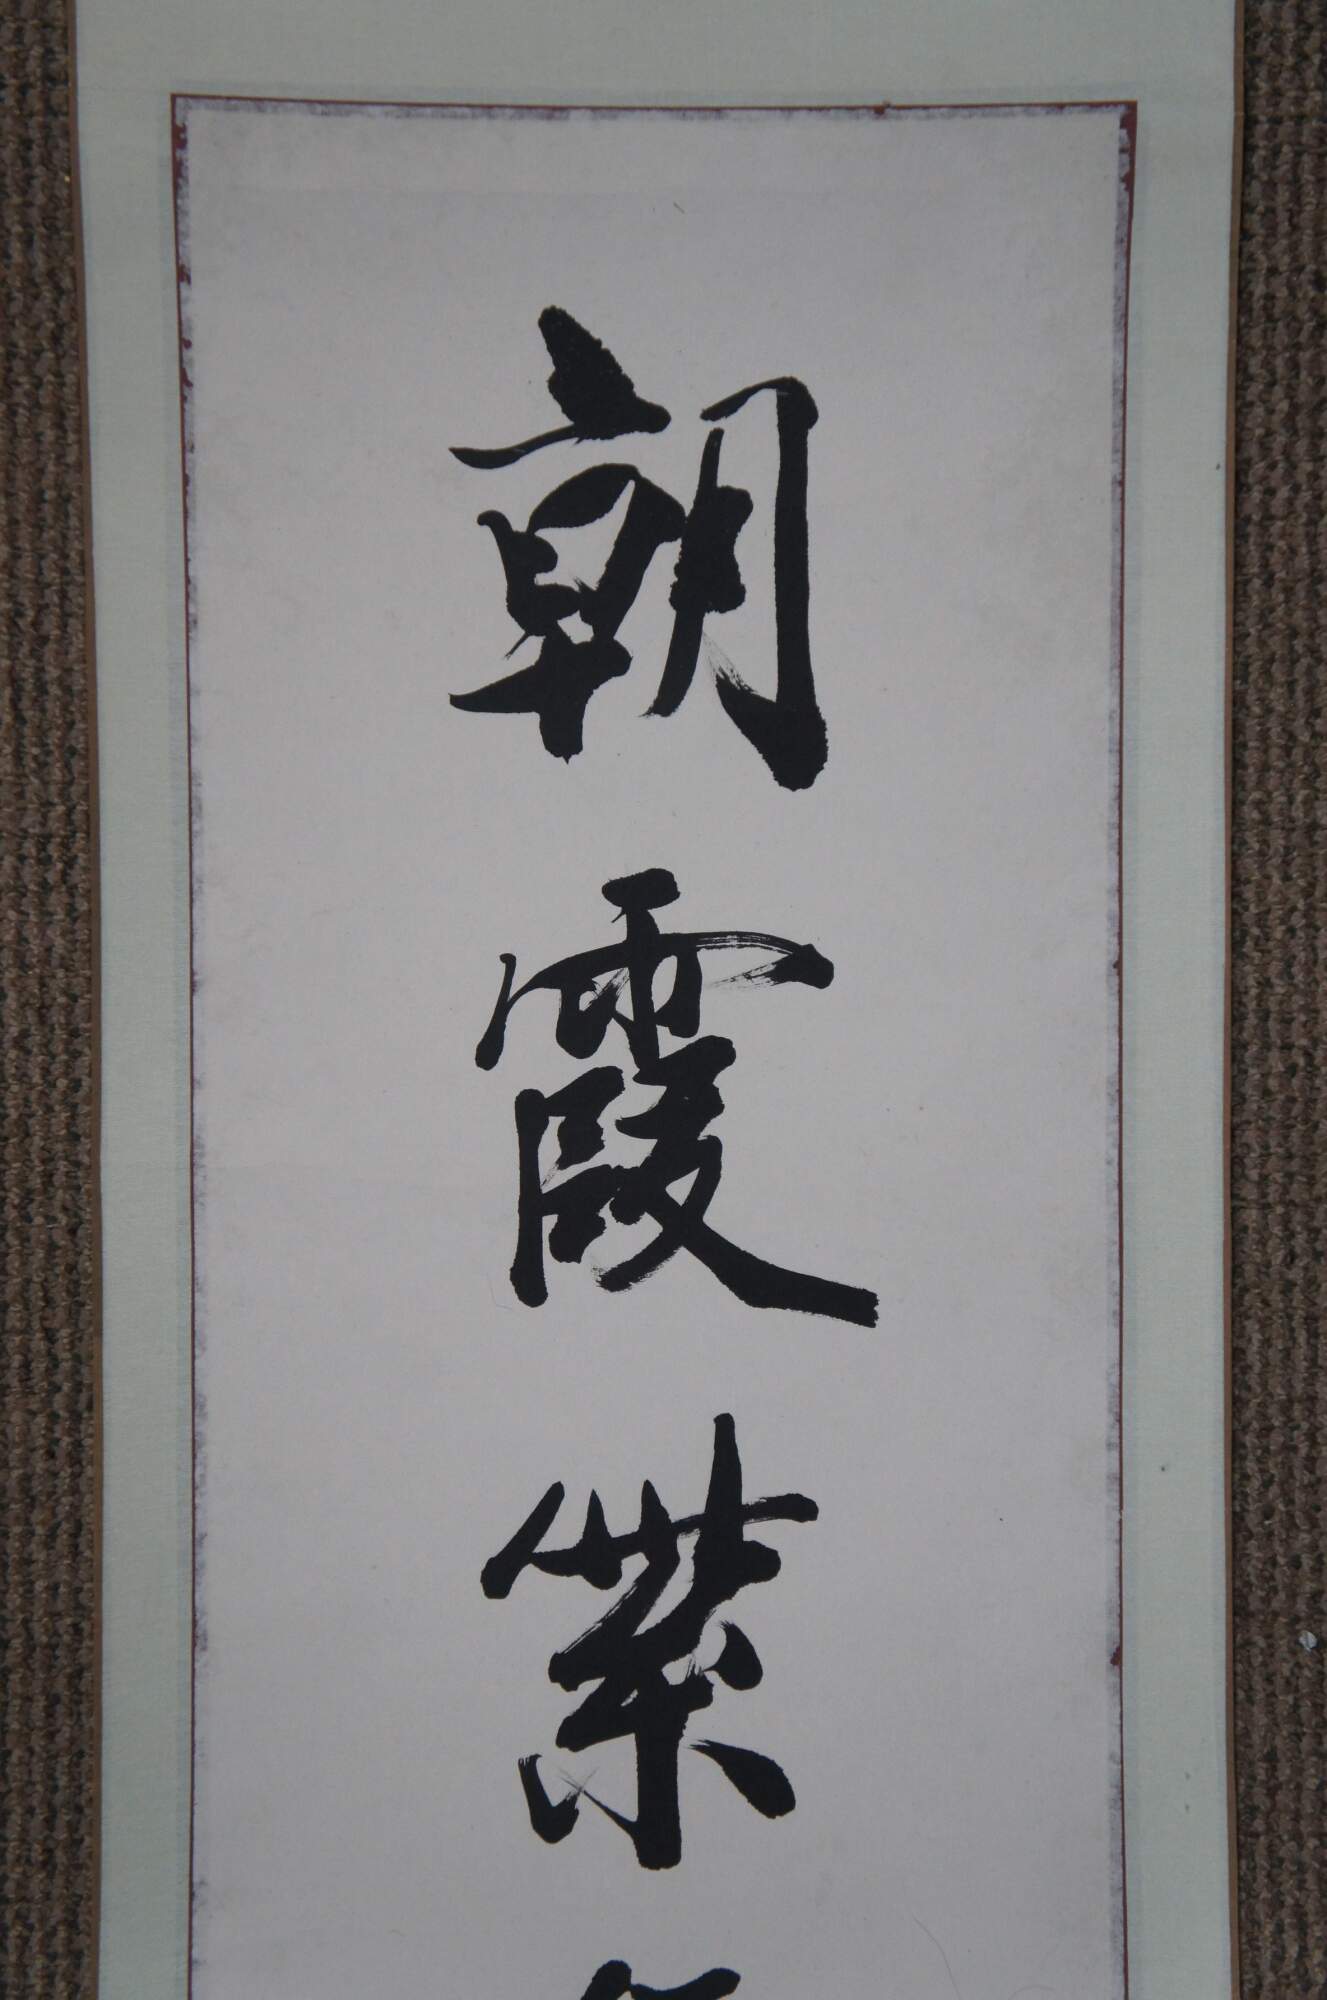 朝霞紫